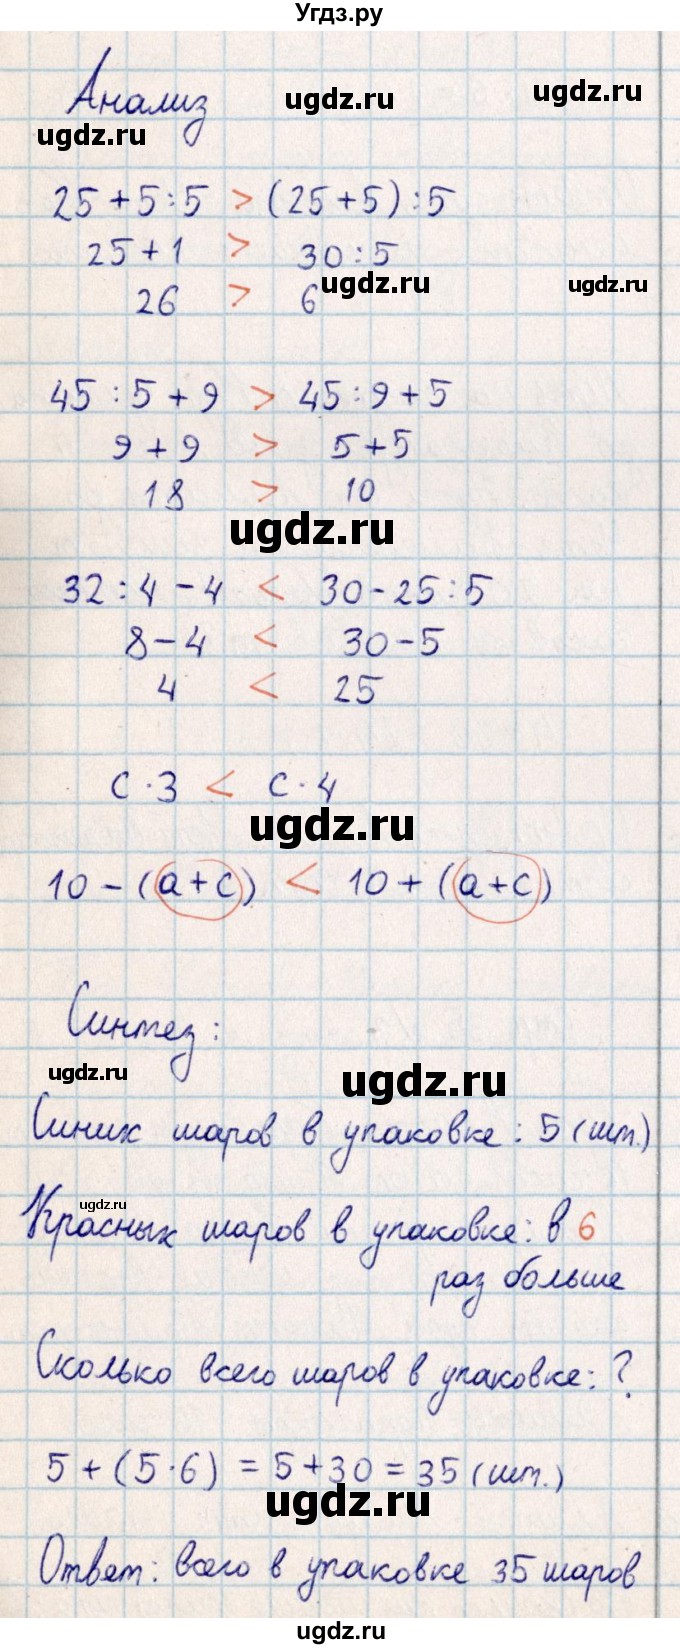 Угдз.ру
Анализ
ugdz.ru
ugdz.ru
ugdz.ru
25 + 5 : 5 > (25 + 5) : 5
25 + 1 > 30 : 5
ugdz.ru
ugdz.ru
26 > 6
45 : 5 + 9 > 45 : 9 + 5
9 + 9 > 5 + 5
18 > 10
ugdz.ru
32 : 4 - 4 < 30 - 25 : 5
8 - 4 < 30 - 5
4 < 25
c · 3 < c · 4
ugdz.ru
10 - (a + c) < 10 + (a + c)
Синтез:
ugdz.ru
ugdz.ru
Синих шаров в упаковке: 5 (шт.)
ugdz.ru
Красных шаров в упаковке: в 6
раз больше
Сколько всего шаров в упаковке: ?
5 + (5 · 6) = 5 + 30 = 35 (шт.)
ugdz.ru
Ответ: всего в упаковке 35 шаров
ugdz.ru